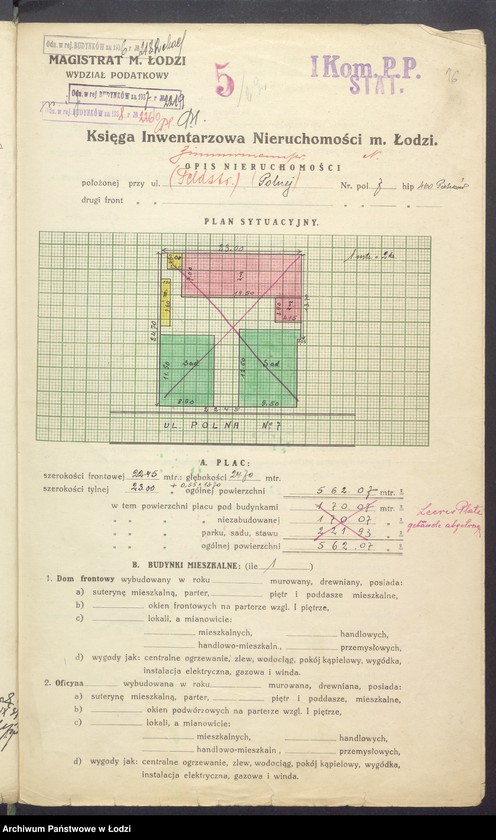 Odz. w rej. BUDYNKÓW za 193
MAGISTRAT M. ŁODZI
WYDZIAŁ PODATKOWY
5
I Kom. P. P.
STAT.
Księga Inwentarzowa Nieruchomości m. Łodzi.
OPIS NIERUCHOMOŚCI
położonej przy ul. (Feldstr.) (Polnej) Nr. pol 7 hip
drugi front
PLAN SYTUACYJNY.
23.00
24.70
17.50
4.15
Sad
Sad
11.50
8.50
UL. POLNA № 7
A. PLAC:
szerokości frontowej 22.45 mtr.: głębokości 24.70 mtr.
szerokości tylnej 23.00 „ ogólnej powierzchni 562 07 mtr. ²
w tem powierzchni placu pod budynkami 170 07 mtr. ²
„ „ „ niezabudowanej 170 07 „ ²
„ „ „ parku, sadu, stawu 221 93 „ ²
„ „ „ ogólnej powierzchni 562 07 „ ²
B. BUDYNKI MIESZKALNE: (ile 1 )
1. Dom frontowy wybudowany w roku murowany, drewniany, posiada:
a) suterynę mieszkalną, parter, piętr i poddasze mieszkalne,
b) okien frontowych na parterze wzgl. I piętrze,
c) lokali, a mianowicie:
mieszkalnych, handlowych,
handlowo-mieszkaln., przemysłowych,
d) wygody jak: centralne ogrzewanie, zlew, wodociąg, pokój kąpielowy, wygódka,
instalacja elektryczna, gazowa i winda.
2. Oficyna wybudowana w roku murowana, drewniana, posiada:
a) suterynę mieszkalną, parter, piętr i poddasze, mieszkalne,
b) okien podwórzowych na parterze wzgl. I piętrze,
c) lokali, a mianowicie:
mieszkalnych, handlowych,
handlowo-mieszkaln., przemysłowych,
d) wygody jak: centralne ogrzewanie, zlew, wodociąg, pokój kąpielowy, wygódka,
instalacja elektryczna, gazowa i winda.
Archiwum Państwowe w Łodzi